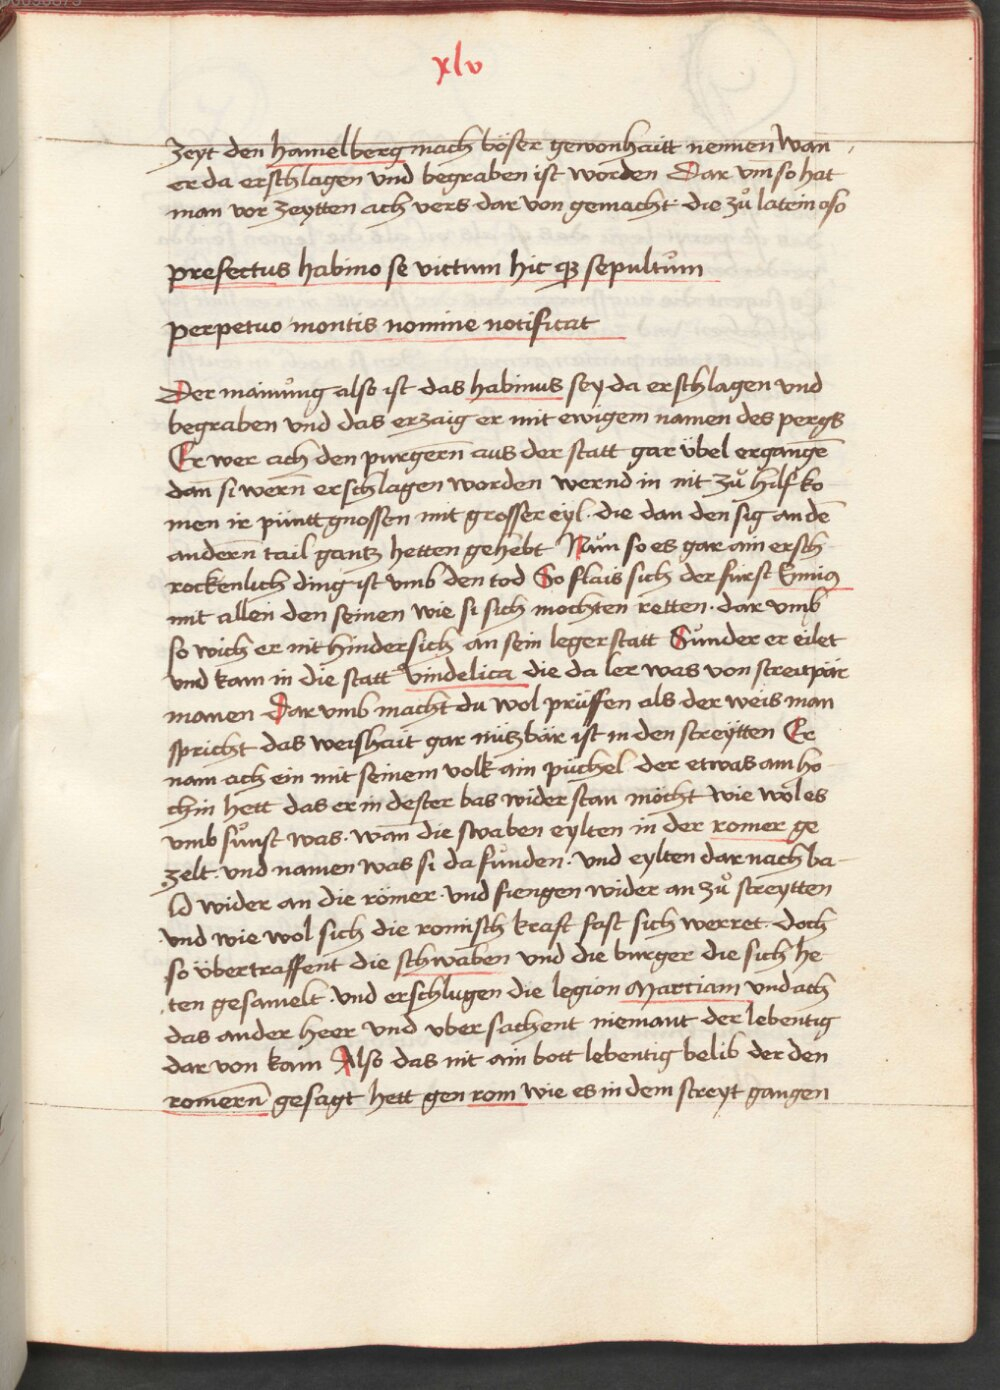 xlv
zeyt den hamelberg nach böser gewonhaitt nennen Wan
er da erschlagen vnd begraben ist worden Dar vm̄ so hat
man vor zeytten ach vers dar von gemacht die zů latein also
prefectus habino se victum hic qꝫ sepultům
perpetuo montis nomine notificat
Der mainůng also ist das habinus sey da erschlagen vnd
begraben vnd das erzaig er mit ewigem namen des pergs
Er wer ach den purgern̄ aus der statt gar übel ergangē
dan̄ si wern̄ erschlagen worden wernd in nit zů hilf ko
men ir püntt gnossen mit grosser eyl · die dan den sig an dē
andern̄ tail gantz hetten gehebt Nun so es gar ain ersch
rockenlich ding ist vmb den tod So flais sich der fürst Ennius
mit allen den seinen wie si sich mochten retten · dar vmb
so wich er nit hindersich an sein legerstatt Sunder er eilet
vnd kam in die statt vindelica die da ler was von streitpär
manen Dar vmb macht du wol prüffen als der weis man
spricht das weishait gar nützbär ist in den streÿtten Er
nam ach ein mit seinem volk ain püchel der etwas am ho
chin hett das er in dester bas wider stan möcht wie wol es
vmb sůnst was · wan̄ die swaben eylten in der romer ge
zelt · vnd namen was si da funden · vnd eylten dar nach ba-
ld wider an die römer · vnd fiengen wider an zů streytten
vnd wie wol sich die romisch kraft fast sich werret · doch
so übertraffent die schwaben vnd die burger die sich he
ten gesamelt · vnd erschlugen die legion Martiam vnd ach
das ander heer vnd vber sachent niemant der lebentig
dar von kam Also das nit ain bott lebentig belib der den
romern̄ gesagt hett gen rom wie es in dem streyt gangen